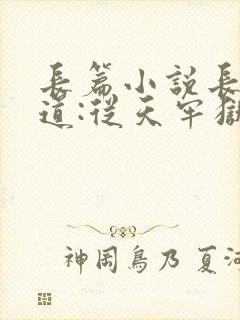 長篇小説長
道:從天牢獄
神岡鳥乃 夏河